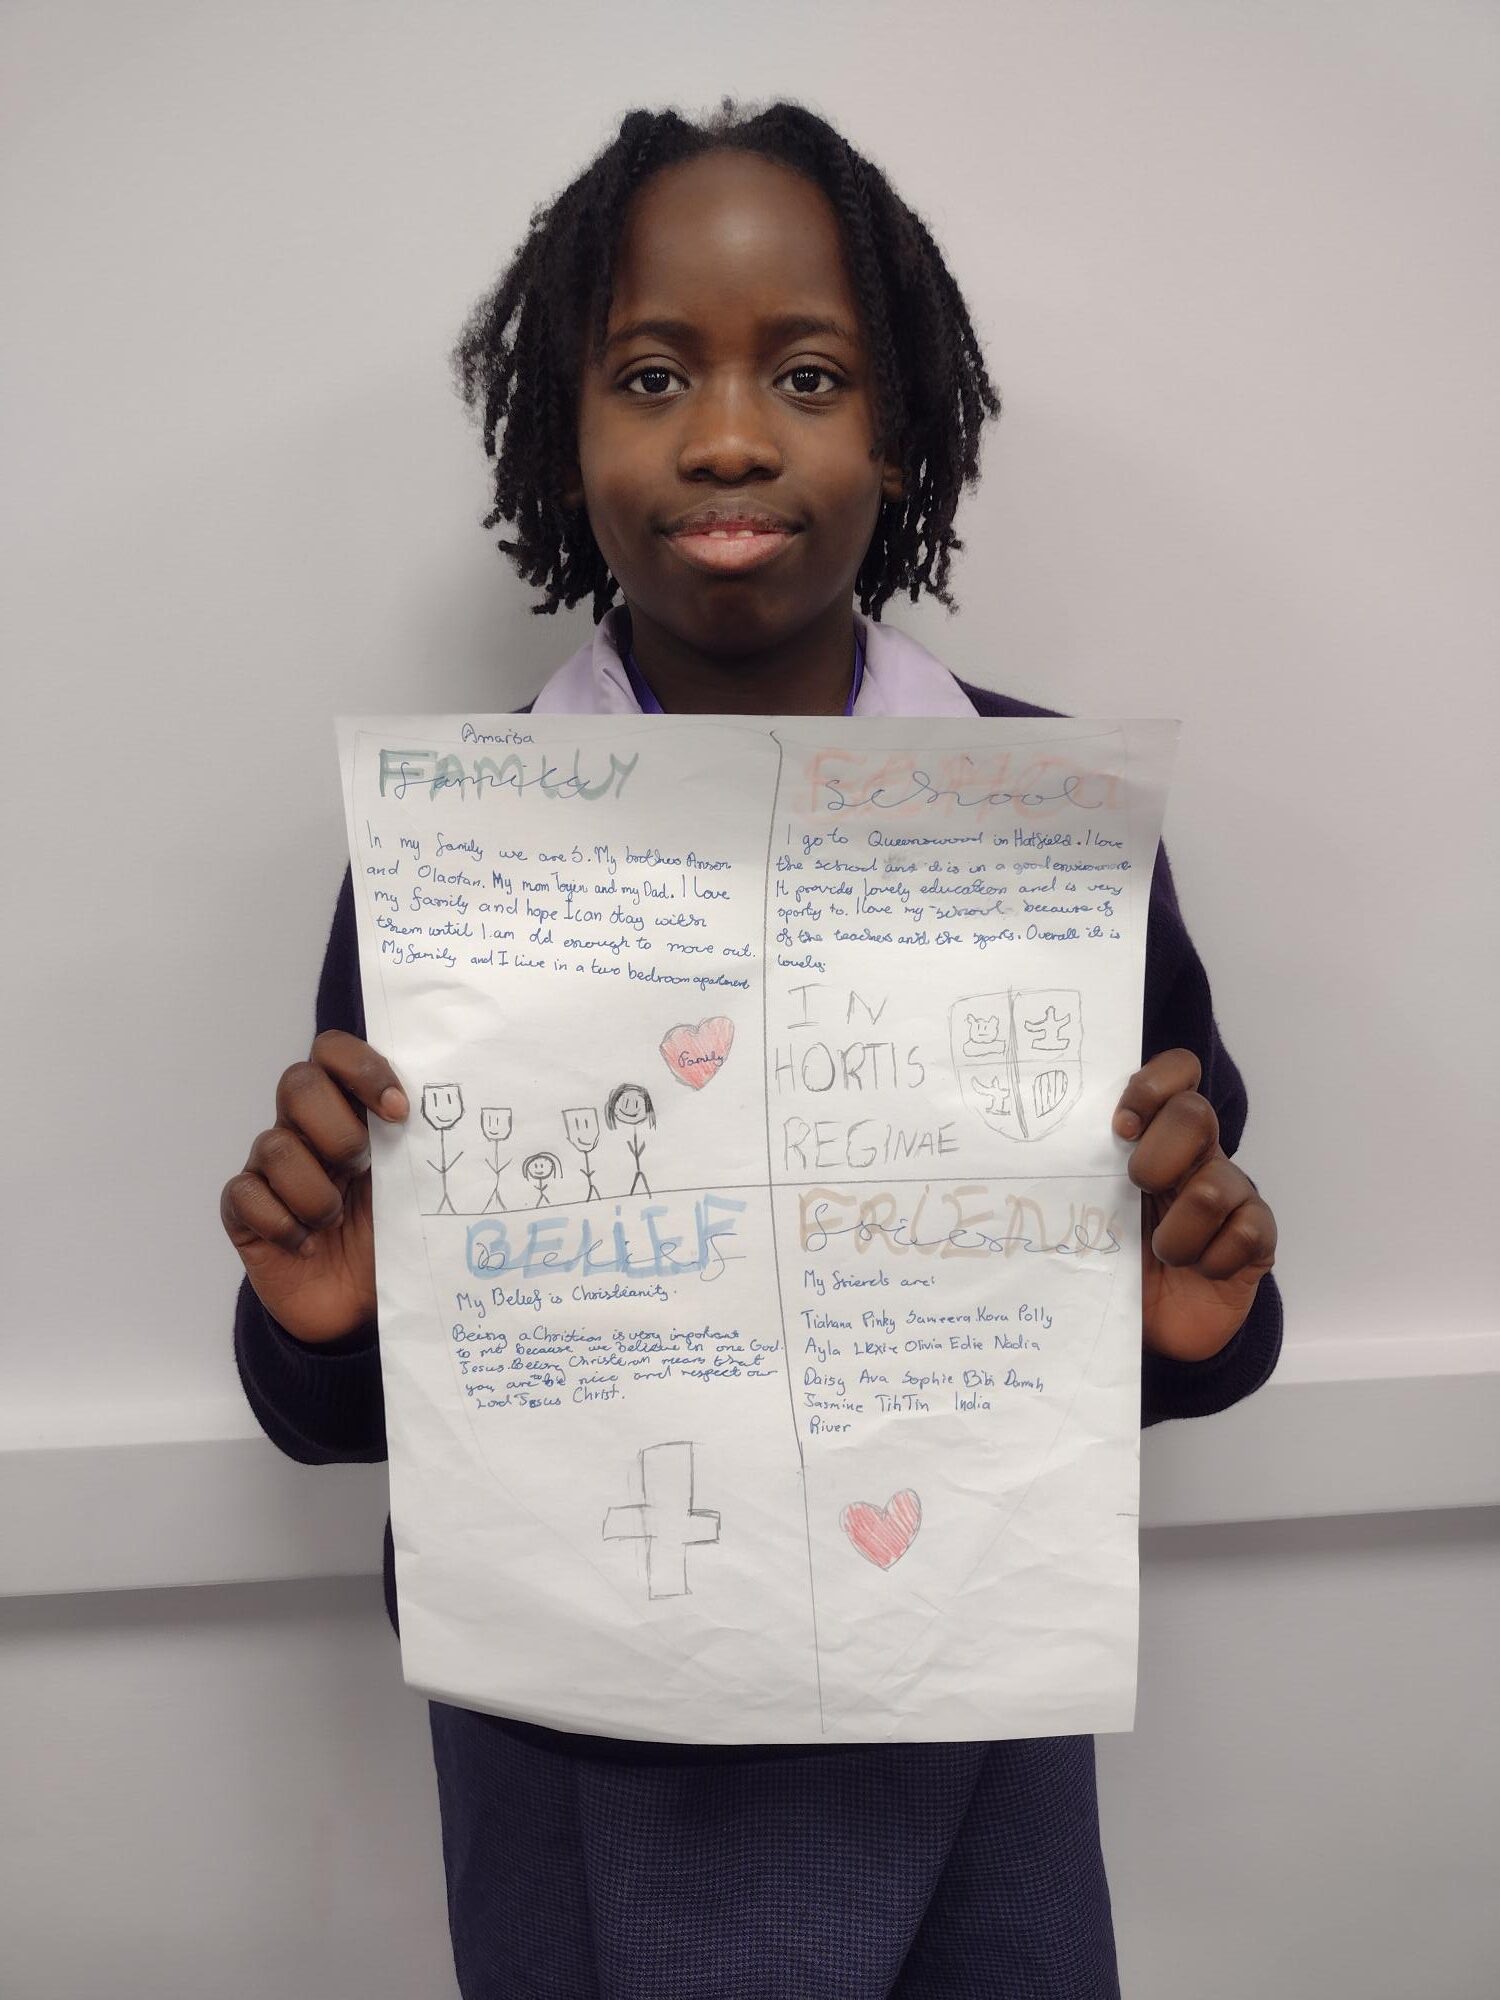 Amarisa
FAMILY
family
In my family we are 5. My brothers Anson
and Olaotan. My mom Toyin and my Dad. I love
my family and hope I can stay with
them until I am old enough to move out.
My family and I live in a two bedroom apartment
Family
School
I go to Queenswood in Hatfield. I love
the school and it is in a good environment
It provides lovely education and is very
sporty to. I love my school because of
of the teachers and the sports. Overall it is
lovely.
IN
HORTIS
REGINAE
BELIEF
Belief
My Belief is Christianity.
Being a Christian is very important
to me because we believe in one God.
Jesus. Being Christian means that
you are to be nice and respect our
Lord Jesus Christ.
FRIENDS
friends
My friends are:
Tiahana Pinky Sameera Kora Polly
Ayla Lexie Olivia Edie Nadia
Daisy Ava Sophie Bibi
Jasmine TihTin India
River